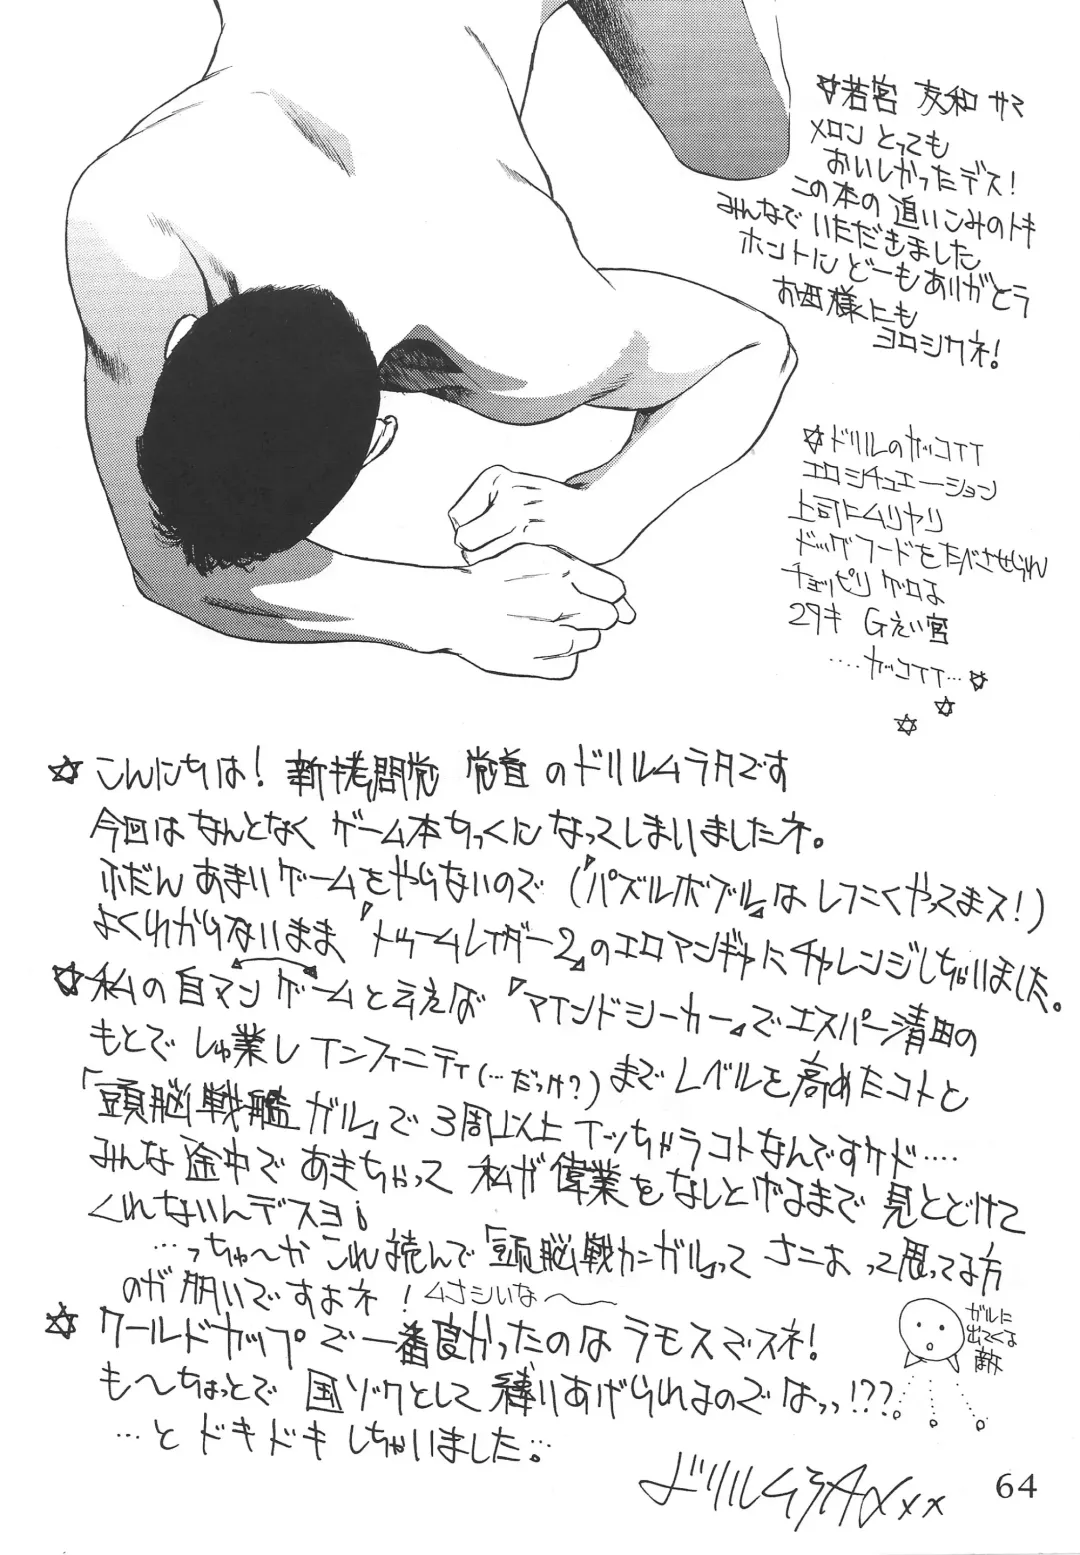 ☆若宮 友和 サマ
メロン とっても
おいしかったデス！
この本の 追いこみのトキ
みんなで いただきました
ホントに どーもありがとう
お母様にも
ヨロシクネ！
☆ドリルのカッコイイ
エロシチュエーション
上司にムリヤリ
ドッグフードをたべさせられ
チョッピリ ゲロな
29才
....カッコイイ...☆
☆
☆
☆ こんにちは！ 新拷問党 党首 のドリルムラタです
今回は なんとなく ゲーム本ちっくに なってしまいましたネ。
ふだん あまりゲームをやらないので (『パズルボブル』は しつこくやってまス！)
よくわからないまま 『トゥームレイダー2』のエロマンガに チャレンジしちゃいました。
☆ 私の 自マン ゲームと言えば 『マインドシーカー』で エスパー清田の
もとで しゅ業し インフィニティ(...だっけ？) まで レベルを 高めたコトと
「頭脳戦艦 ガル」で 3周以上 イッちゃったコトなんですケド....
みんな 途中で あきちゃって 私が 偉業を なしとげるまで 見とどけて
くれないんデスヨ！
...っちゅ〜か これ 読んで「頭脳戦カンガル」って ナニよ って思ってる方
のが 多いですよネ！ ムナシいな〜
ガルに
出てくる
敵
☆ ワールドカップで 一番良かったのは ラモスでスネ！
も〜ちょっとで 国ゾクとして 奉りあげられるのでは っっ!???
...と ドキドキ しちゃいました...
ドリルムラタxxx
64